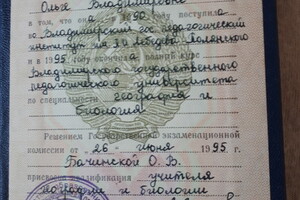 Ольге Владимировне
в том, что она в 1990 г. поступила
во Владимирский гос. педагогический
институт им. П.И. Лебедева-Полянского
и в 1995 окончила полный курс
Владимирского государственного
педагогического университета
по специальности
география и
биология
Решением Государственной экзаменационной
комиссии от „26" июня 1995 г.
Бачинской О.В.
присвоена квалификация учителя
географии и биологии